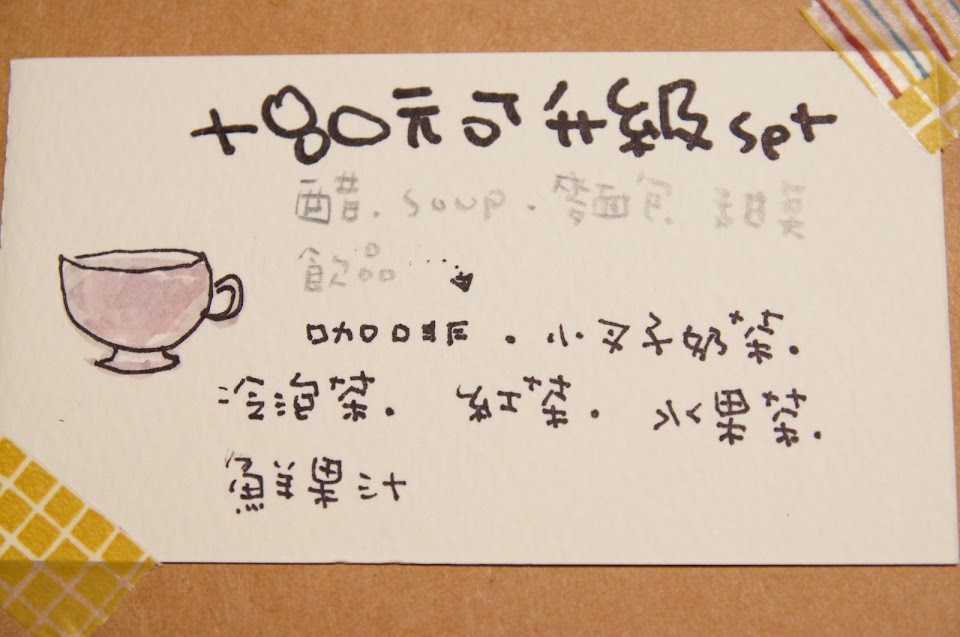 +80元可升級set
醋.soup.麵包
飲品 ....
咖啡.小丸子奶茶.
冷泡茶. 紅茶. 水果茶.
鮮果汁